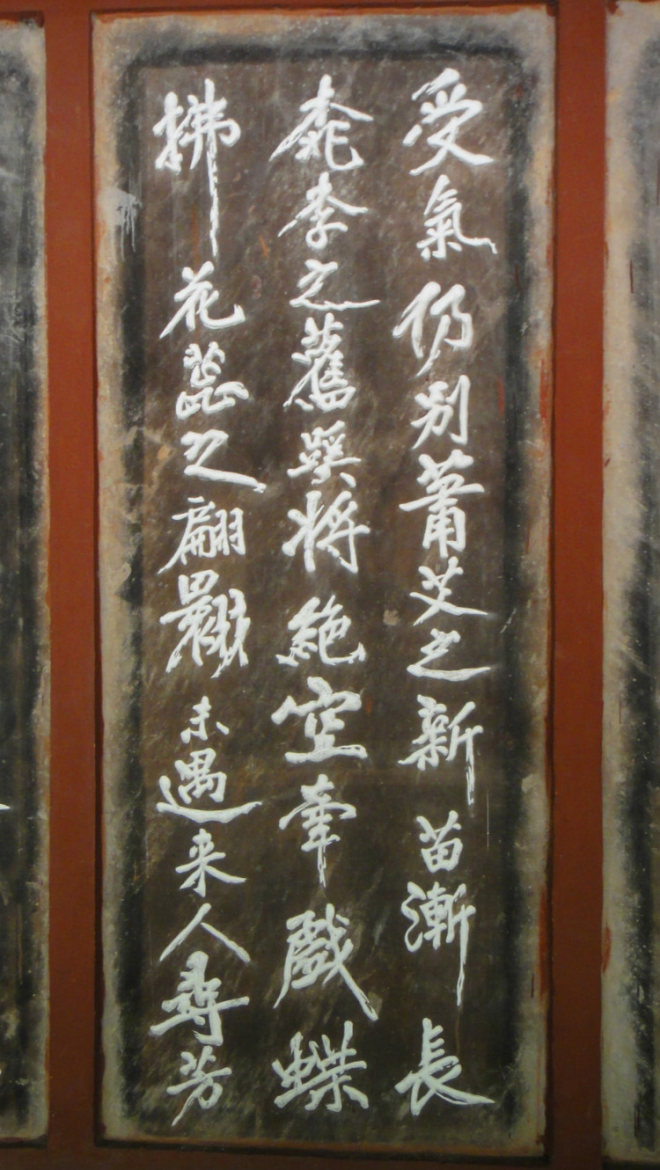 受氣仍別蕭艾之新苗漸長
桃李之舊蹊將絕空牽戲蝶
拂花蕊之翩翾未遇来人尋芳